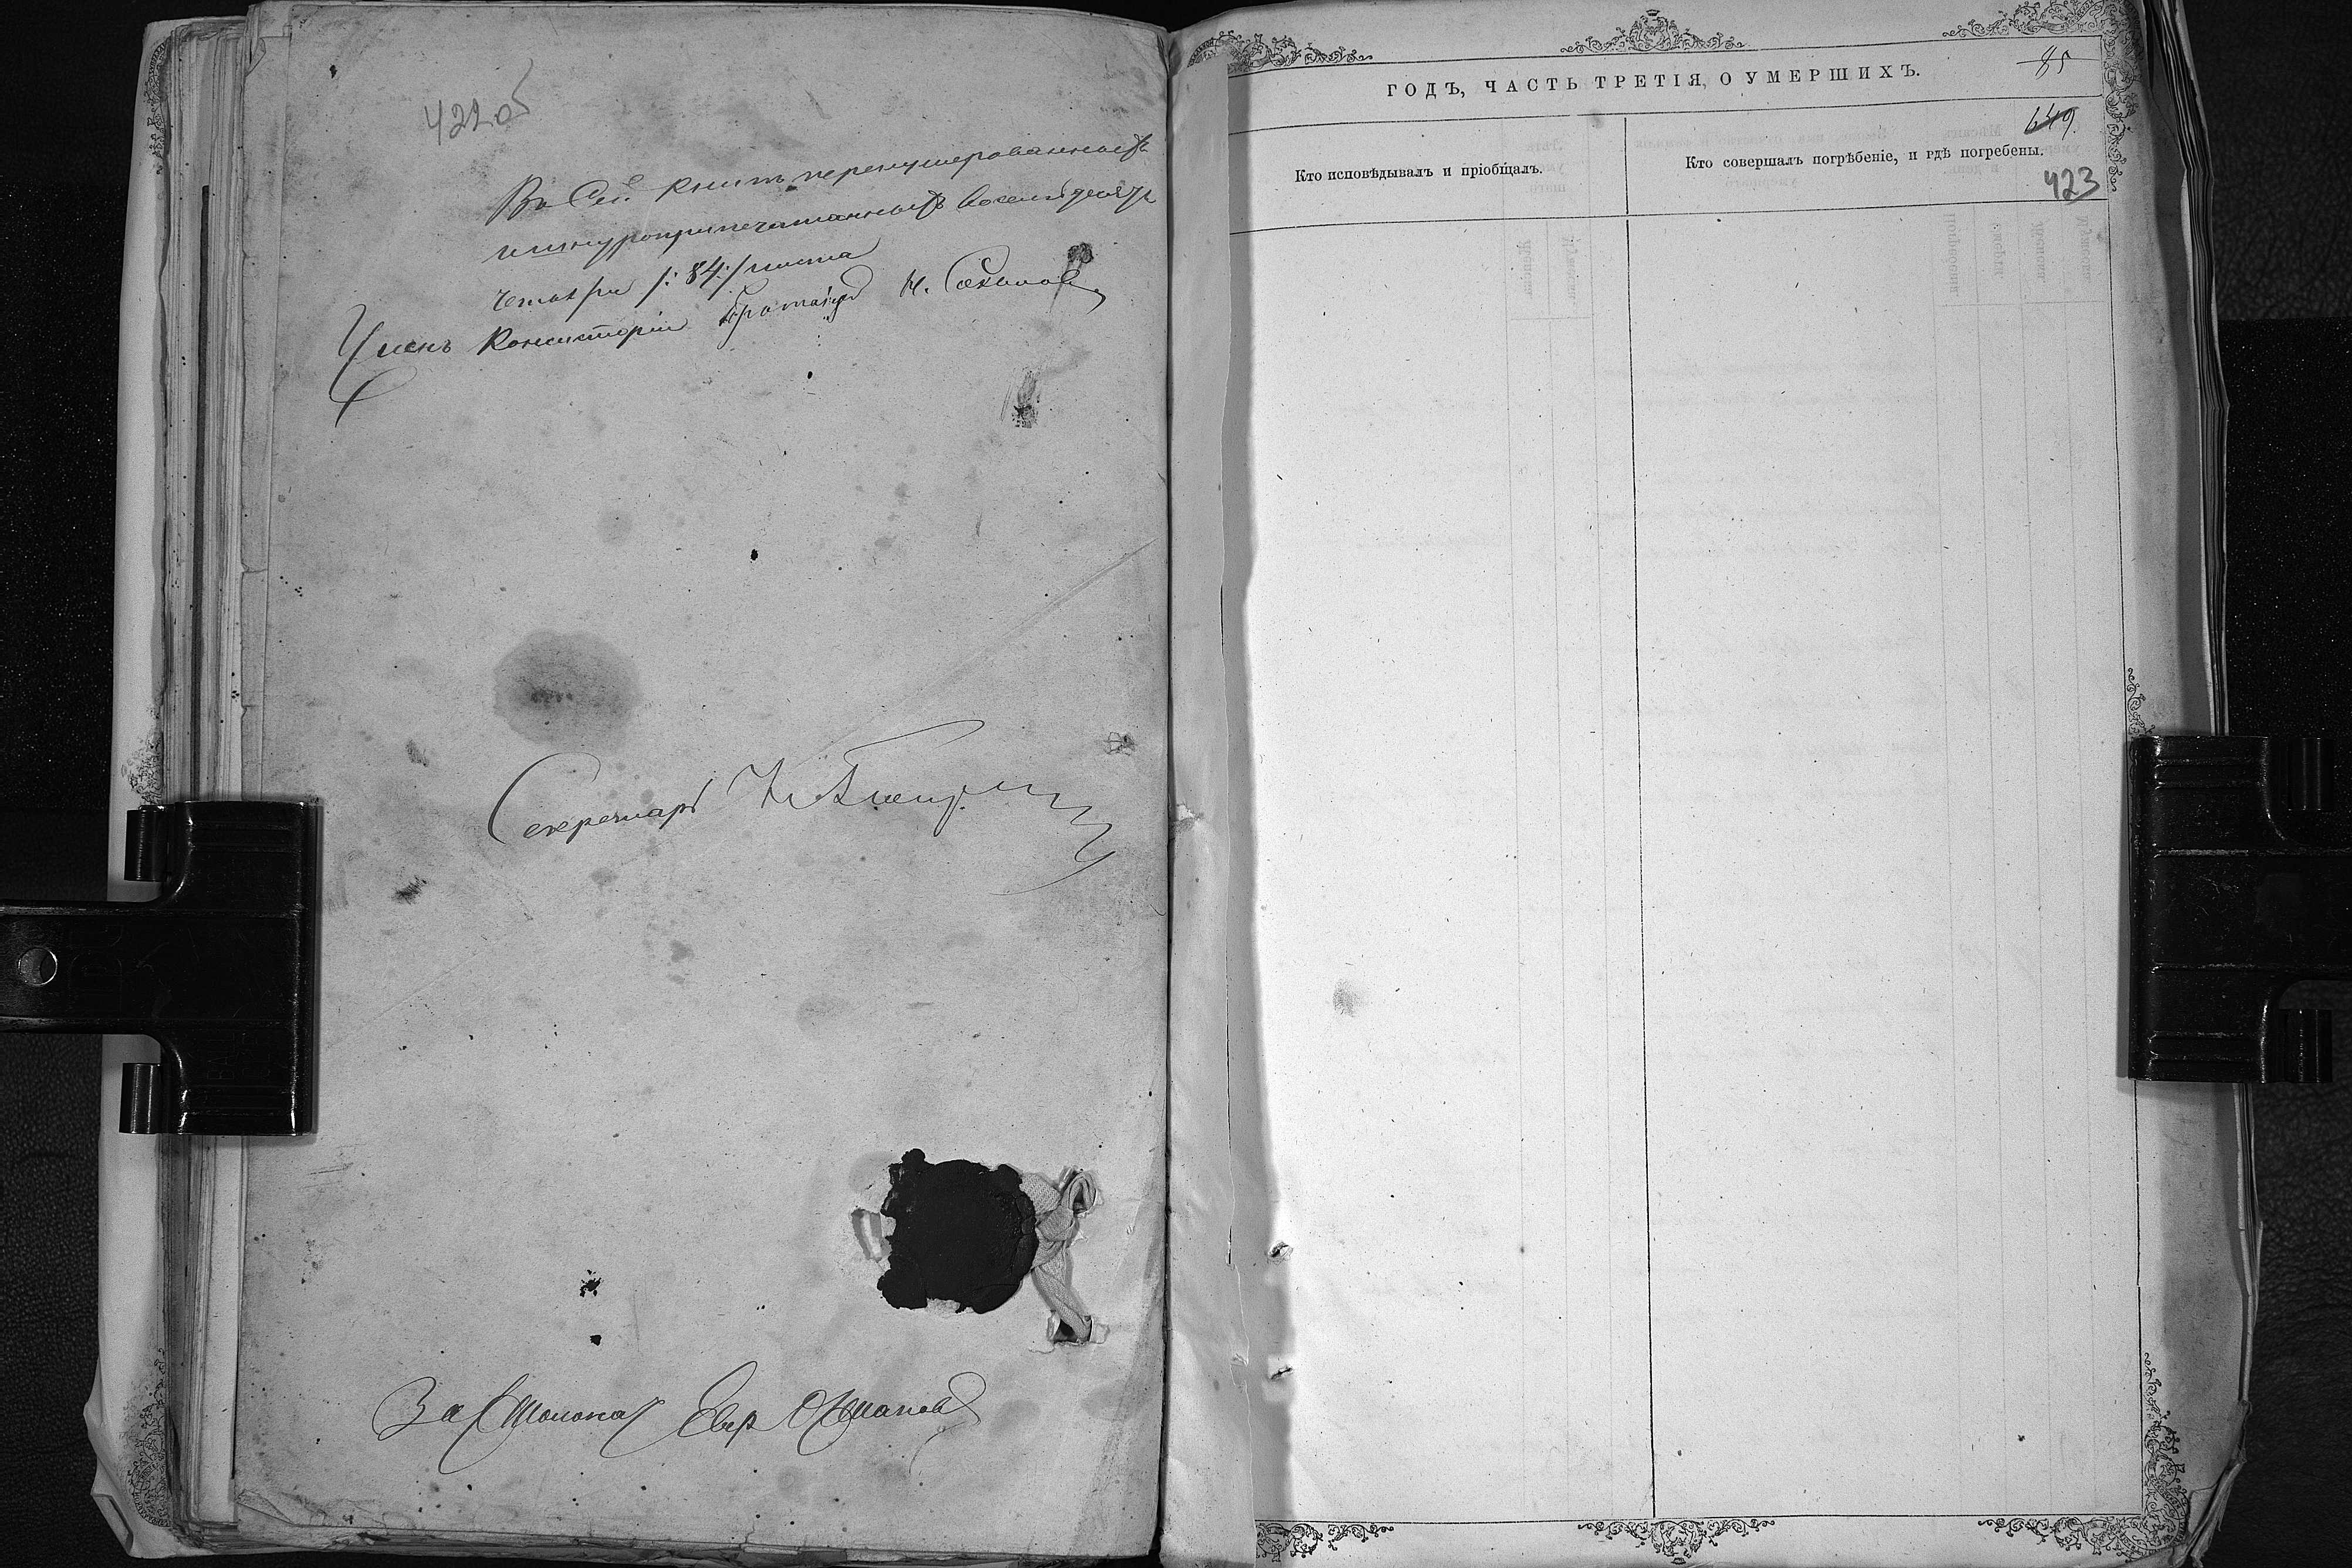 422 об
Въ Сей книгѣ перенумерованныхъ
и шнуроприпечатанныхъ восемьдесятъ
четыре /:84:/ листа
Членъ Консисторіи Протоіерей Н. Соколовъ
Секретарь Н.
За Столонач. Евг.
ГОДЪ, ЧАСТЬ ТРЕТІЯ, О УМЕРШИХЪ.
85
649.
Кто исповѣдывалъ и пріобщалъ.
Кто совершалъ погрѣбеніе, и гдѣ погребены.
423